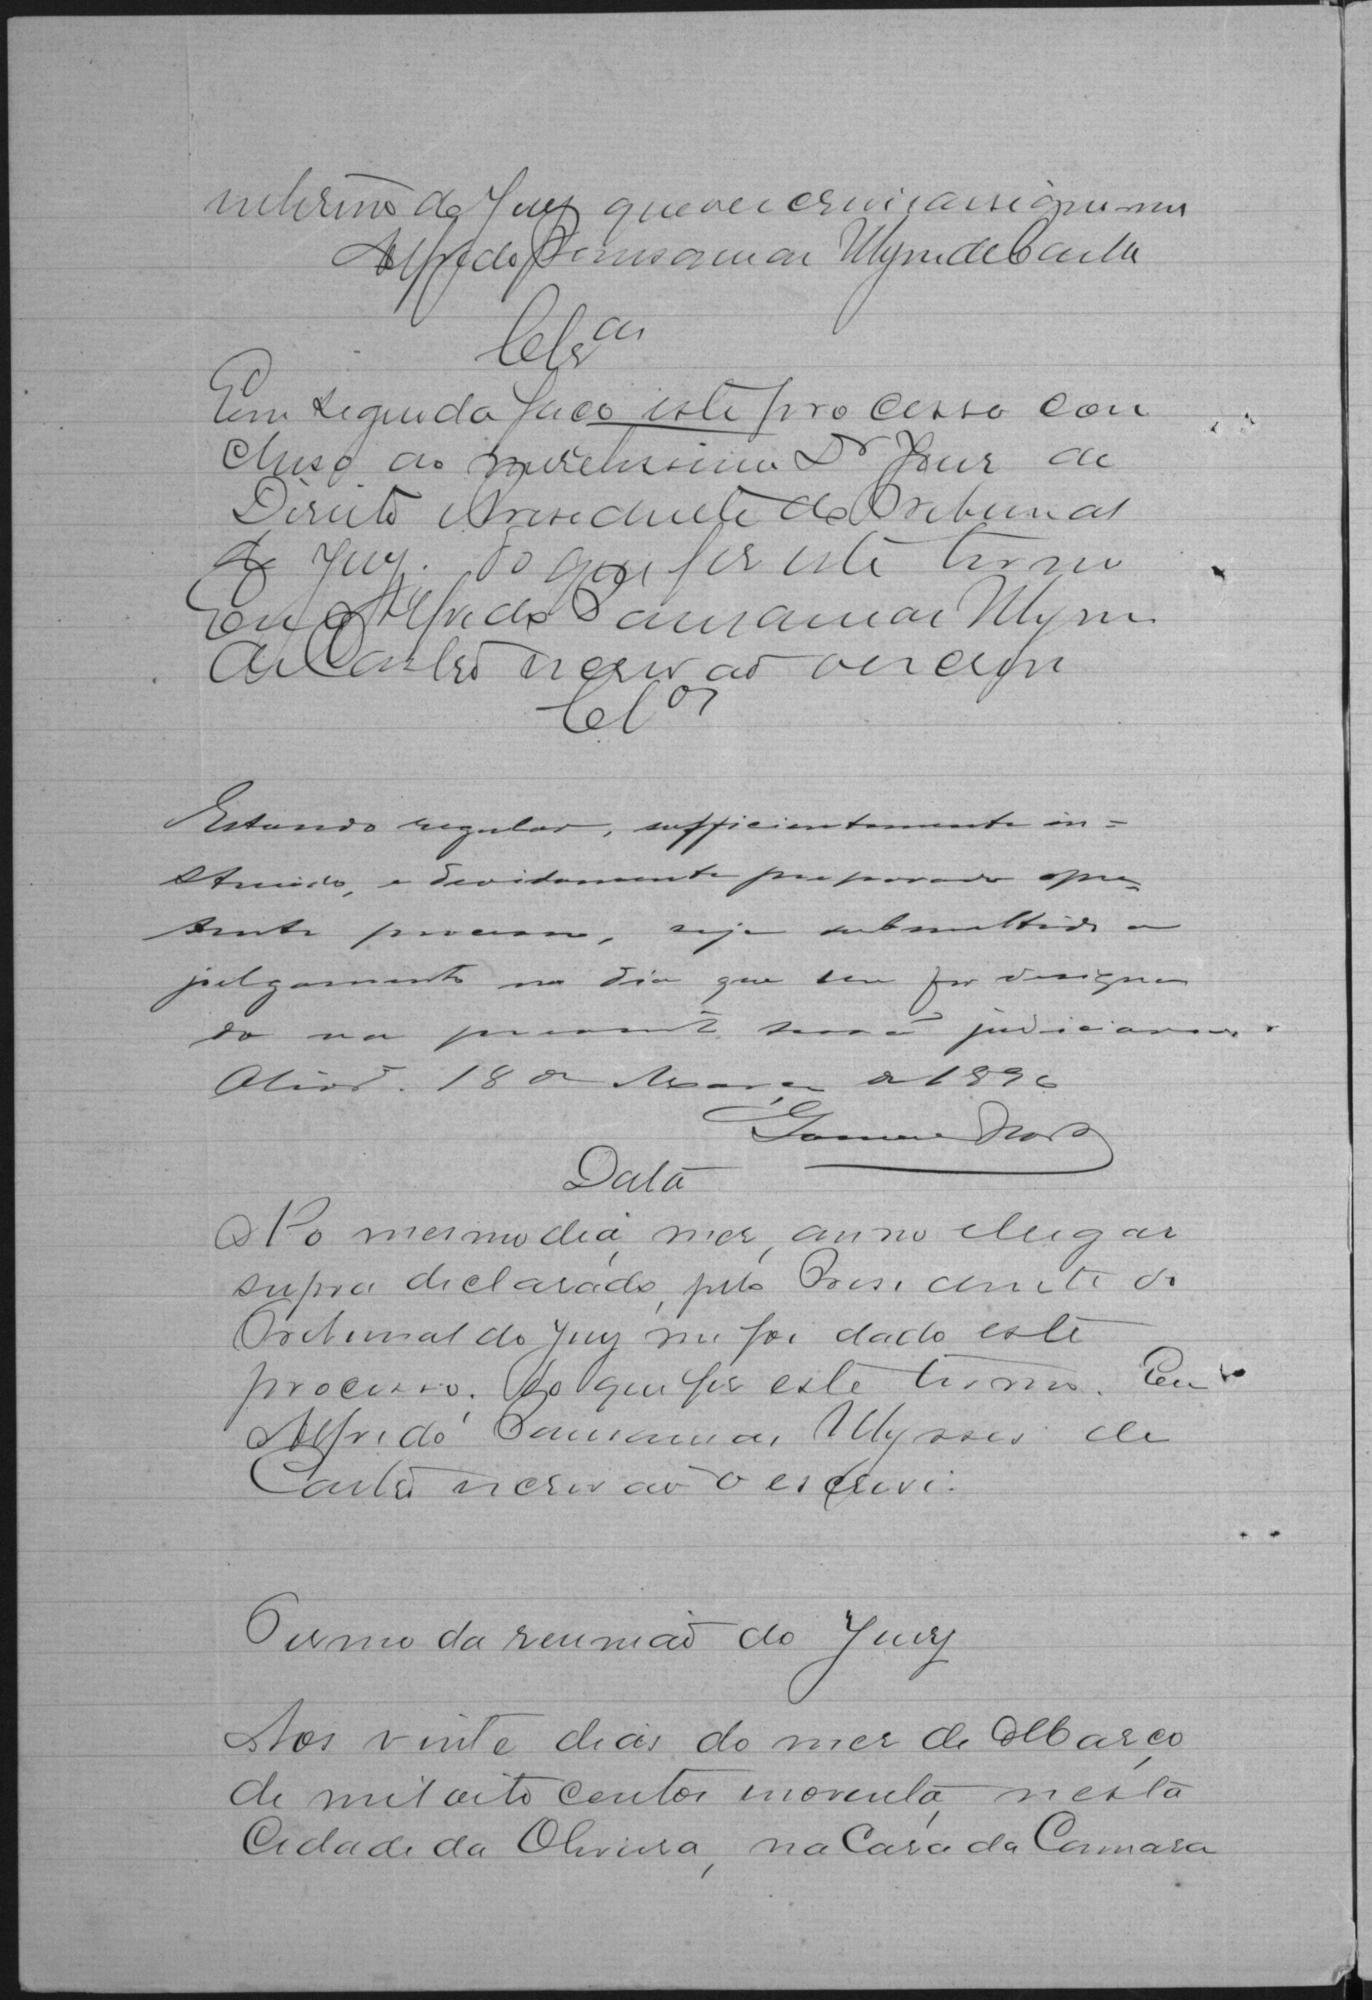 interino do Jury que escrevi e assigno
Alfredo Ulysses de Castro
Cls.os
Em seguida faço este processo con
cluso ao meretissimo Dr Juiz de
Direito e Presidente do Tribunal
do Jury. Do que fiz este termo
Eu Alfredo Ulysses
de Castro escrivão o escrevi
Cl.os
Estando regular, sufficientemente in=
struido, e devidamente preparado o pre=
sente processo, seja submettido a
julgamento no dia que for designa
do na presente sessão judiciaria.
Olivrª. 18 de Março de 1890
Data
No mesmo dia, mez, anno e lugar
supra declarado, pelo Presidente do
Tribunal do Jury me foi dado este
processo. Do que fiz este termo. Eu
Alfredo Ulysses de
Castro escrivão o escrevi.
Termo da reunião do Jury
Aos vinte dias do mez de Março
de mil oito centos e noventa, nesta
Cidade da Oliveira, na Casa da Camara